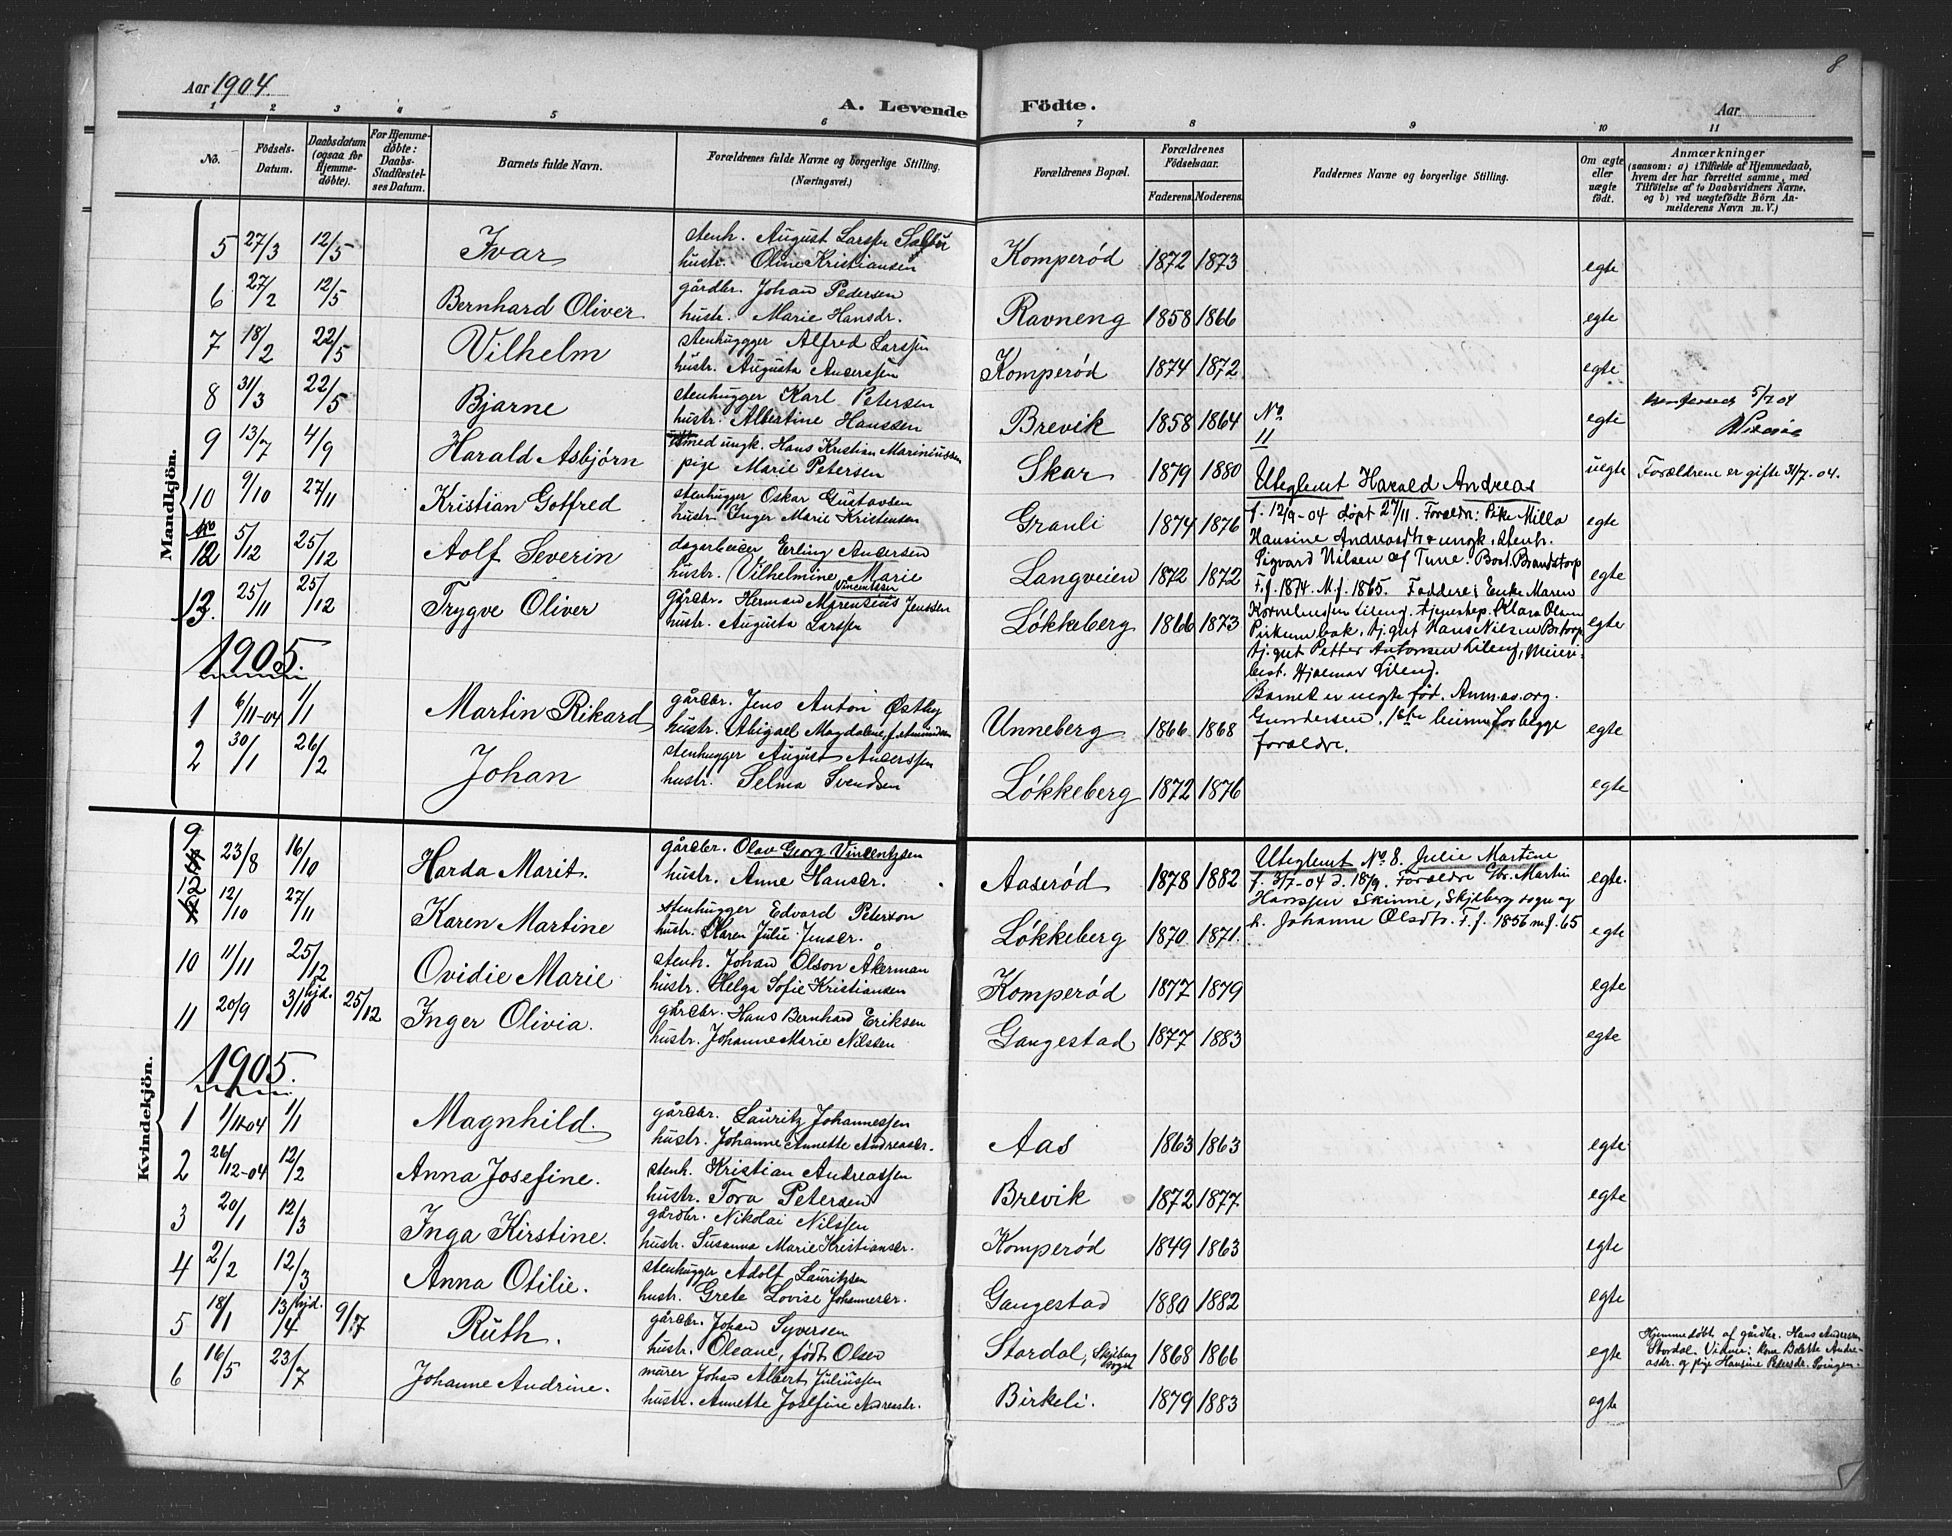 8
Aar 1904.
A. Levende Födte.
Aar
1 2 3 4 5 6 7 8 9 10 11
No. Födsels-Datum. Daabsdatum (ogsaa for Hjemme-döbte). For Hjemme-döbte: Daabs-Stadfæstel-ses Datum. Barnets fulde Navn. Forældrenes fulde Navne og borgerlige Stilling. (Næringsvei.) Forældrenes Bopæl. Forældrenes Födselsaar. Faderens. Moderens. Faddernes Navne og borgerlige Stilling. Om ægte eller uægte födt. Anmærkninger (saasom: a) i Tilfælde af Hjemmedaab, hvem der har forrettet samme, med Tilföielse af to Daabsvidners Navne, og b) ved uægtefödte Börn An-melderens Navn m. V.)
Mandkjön.
5 27/3 12/5 Ivar stenh. August Larssen
hustr. Oline Kristiansen Komperød 1872 1873 egte
6 27/2 12/5 Bernhard Oliver gårdbr. Johan Pedersen
hustr. Marie Hansdr. Ravneng 1858 1866 egte
7 18/2 22/5 Vilhelm stenhugger Alfred Larssen
hustr. Augusta Anderssen Komperød 1874 1872 egte
8 31/3 22/5 Bjarne stenhugger Karl Petersen
hustr. Albertine Hanssen Brevik 1858 1864 egte 5/7 04
9 13/7 4/9 Harald Asbjørn ungk. Hans Kristian Mariniussen
pige Marie Petersen Skar 1879 1880 uegte Forældrene er gifte 31/7. 04.
10 9/10 27/11 Kristian Gotfred stenhugger Oskar Gustavsen
hustr. Inger Marie Kristensen Granli 1874 1876 egte
No 12 5/12 25/12 Adolf Severin dagarbeider Erling Andersen
hustr. Vilhelmine Marie Vincentssen Langveien 1872 1872 egte
13. 25/11 25/12 Trygve Oliver gårdbr. Herman Marensius Jenssen
hustr. Augusta Larssen Løkkeberg 1866 1873 egte
No 11
Uteglemt Harald Andreas
f. 12/9-04 døpt 27/11. Foræld: Pike Milla
Hansine Andreasdtr & ungk. stenh.
Sigvard Nilsen af Tune. Bost. Brandstorp
F.f. 1874. M.f. 1865. Faddere: Enke Maren
Kornelinssen Lileng, tjenestep. Klara Olsen
tj.gut Hans Nilsen
tj.gut Petter Antonsen Lileng, Meieri-
best. Hjalmar Lileng.
Barnet er uegte fød. Anm. as. org.
Gundersen. 1ste leiermål for begge
forældre.
1905.
1 6/11-04 1/1 Martin Rikard gårdbr. Jens Anton Østby
hustr. Abigael Magdalene, f. Amundsen Unneberg 1866 1868 egte
2 30/1 26/2 Johan stenhugger August Anderssen
hustr. Selma Svendsen Løkkeberg 1872 1876 egte
Kvindekjön.
9 23/8 16/10 Harda Marit. gårdbr. Olav Georg Vincentzsen
hustr. Anne Hansdr. Aaserød 1878 1882 egte.
12/10 27/11 Karen Martine stenhugger Edvard Peterson
hustr. Karen Julie Jensdr. Løkkeberg 1870 1871. egte
Uteglemt No 8. Julie Martine
f. 3/7-04 d. 18/9. Forældre Gbr. Martin
Hanssen Skinne, Skjeberg sogn og
h. Johanne Olsdtr. F.f. 1856 m.f. 65
10 11/11 25/12 Ovidie Marie stenh. Johan Olson Åkerman
hustr. Helga Sofie Kristiansen Komperød 1877 1879 egte
11 20/9 3/10 hjd. 25/12 Inger Olivia. gårdbr. Hans Bernhard Eriksen
hustr. Johanne Marie Nilssen Gangestad 1877 1883 egte
1905.
1 1/11-04 1/1 Magnhild. gårdbr. Lauritz Johannessen
hustr. Johanne Annette Andreasdr. Aas 1863 1863 egte
2 26/12-04 12/2 Anna Josefine. stenh. Kristian Andreassen
hustr. Tora Petersen Brevik 1872 1877. egte
3 20/1 12/3 Inga Kirstine. gårdbr. Nikolai Nilssen
hustr. Susanna Marie Kristiansdr. Komperød 1849 1863 egte
4 2/2 12/3 Anna Otilie. stenhugger Adolf Lauritzsen
hustr. Grete Lovise Johannesdr. Gangestad 1880 1882 egte
5 18/1 13/4 hjd. 9/7 Ruth. gårdbr. Johan Syversen
hustr. Oleane, født Olsen Stordal, Skjeberg sogn 1868 1866 egte Hjemmedøbt af gårdbr. Hans Andersen
Stordal. Vidner: kone Bolette Andre-
asdr. og pige Hansine Pedersdr. Springen
6 16/5 23/7 Johanne Andrine. murer Johan Albert Juliussen
hustr. Annette Josefine Andreasdr. Birkeli. 1879 1883 egte